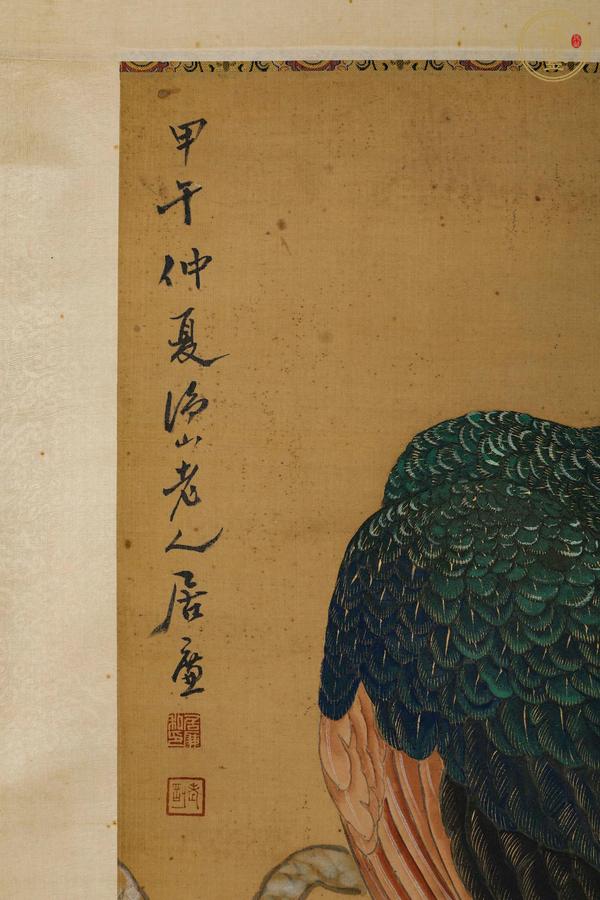 甲午仲夏隔山老人居廉